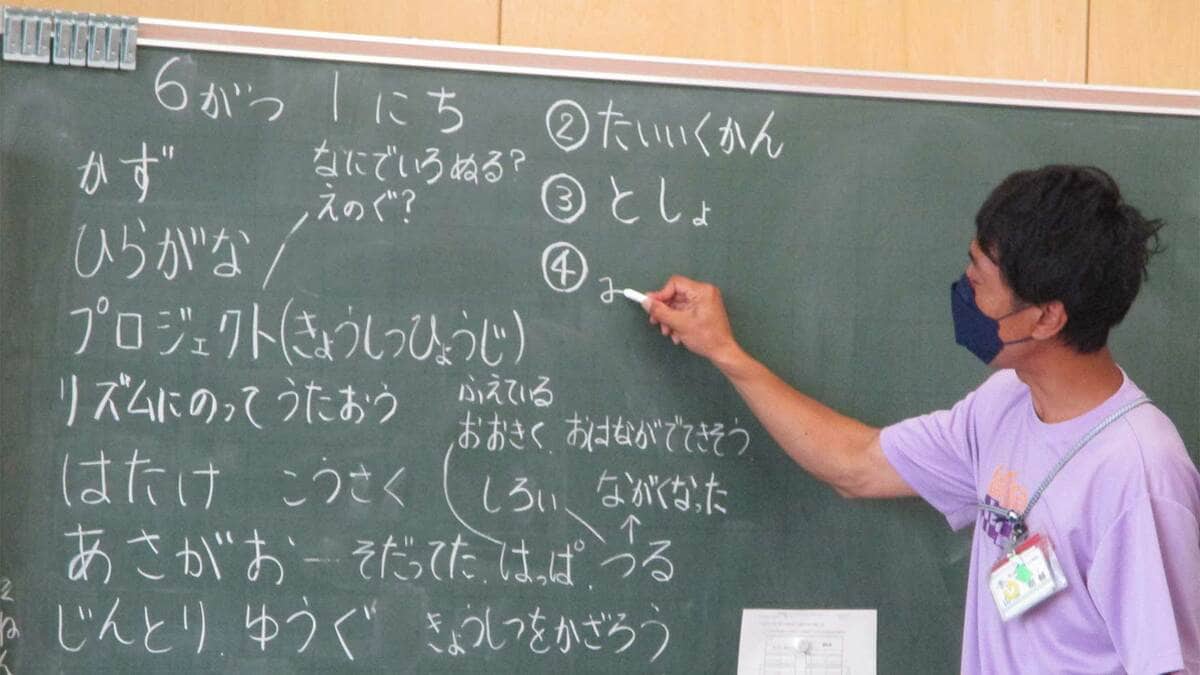 6がつ1にち
かず
なにでいろぬる?
えのぐ?
ひらがな
プロジェクト(きょうしつひょうじ)
リズムにのってうたおう
ふえている
おおきく おはながでてきそう
はたけ こうさく
しろい ながくなった
↑
あさがおーそだってた.はっぱ.つる
じんとり.ゆうぐ きょうしつをかざろう
②たいいくかん
③としょ
④